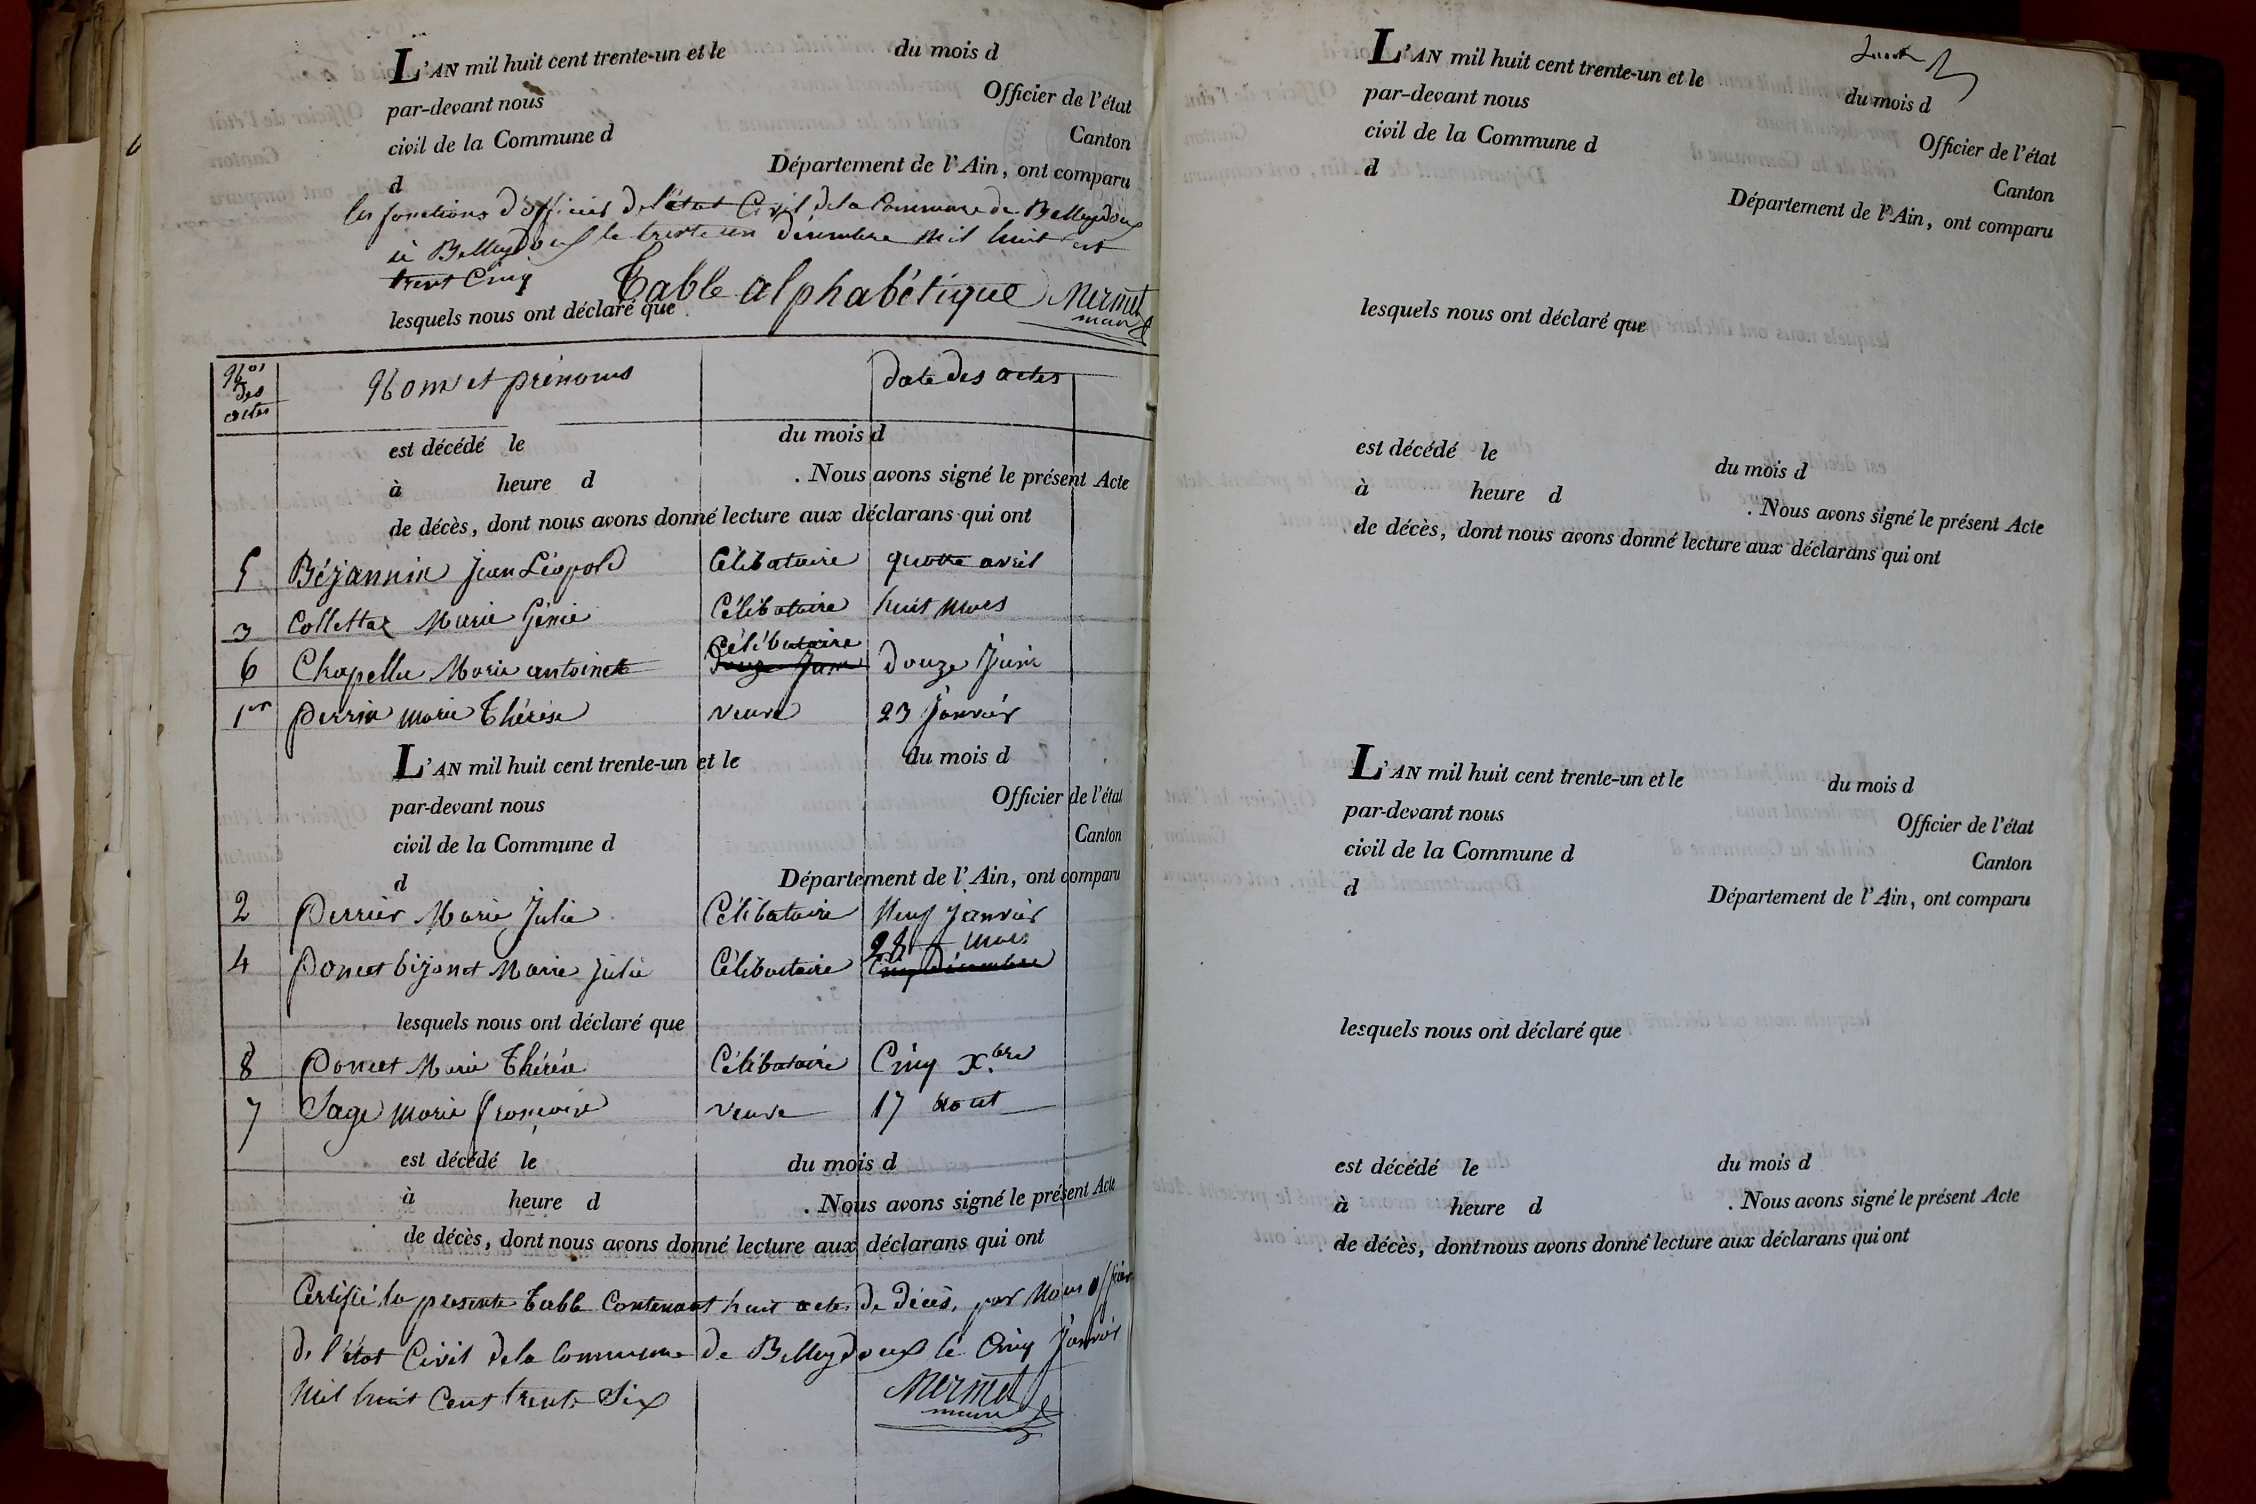 L'AN mil huit cent trente-un et le du mois d
par-devant nous Officier de l'état
civil de la Commune d Canton
d Département de l'Ain, ont comparu
les fonctions d'officier de l'état Civil de la Commune de Belleydoux
à Belleydoux le trente un décembre mil huit cent
trent Cinq
Table alphabétique Mermet
maire
lesquels nous ont déclaré que
Nos des actes Nom et prénoms date des actes
est décédé le du mois d
à heure d . Nous avons signé le présent Acte
de décès, dont nous avons donné lecture aux déclarans qui ont
5 Béjannin Jean Léopold Célibataire quatre avril
3 Collettaz Marie Génie Célibataire huit mars
Célébataire
6 Chapellu Marie antoinette douze Juin douze Juin
1er Perrin marie Thérèse veuve 23 Janvier
L'AN mil huit cent trente-un et le du mois d
par-devant nous Officier de l'état
civil de la Commune d Canton
d Département de l'Ain, ont comparu
2 Perrier Marie Julie Célibataire Neuf Janvier
28 mars
4 Poncet bijonet Marie Julie Célibataire Cinq Décembre
lesquels nous ont déclaré que
8 Poncet Marie Thérèse Célibataire Cinq Xbre
7 Sage marie françoise veuve 17 aout
est décédé le du mois d
à heure d . Nous avons signé le présent Acte
de décès, dont nous avons donné lecture aux déclarans qui ont
Certifié la presente Table Contenant huit actes de Décès, par Nous officier
de l'état Civil de la Commune de Belleydoux le Cinq Janvier
Mil huit Cent trente Six
Mermet
maire
L'AN mil huit cent trente-un et le du mois d
par-devant nous Officier de l'état
civil de la Commune d Canton
d Département de l'Ain, ont comparu
lesquels nous ont déclaré que
est décédé le du mois d
à heure d . Nous avons signé le présent Acte
de décès, dont nous avons donné lecture aux déclarans qui ont
L'AN mil huit cent trente-un et le du mois d
par-devant nous Officier de l'état
civil de la Commune d Canton
d Département de l'Ain, ont comparu
lesquels nous ont déclaré que
est décédé le du mois d
à heure d . Nous avons signé le présent Acte
de décès, dont nous avons donné lecture aux déclarans qui ont